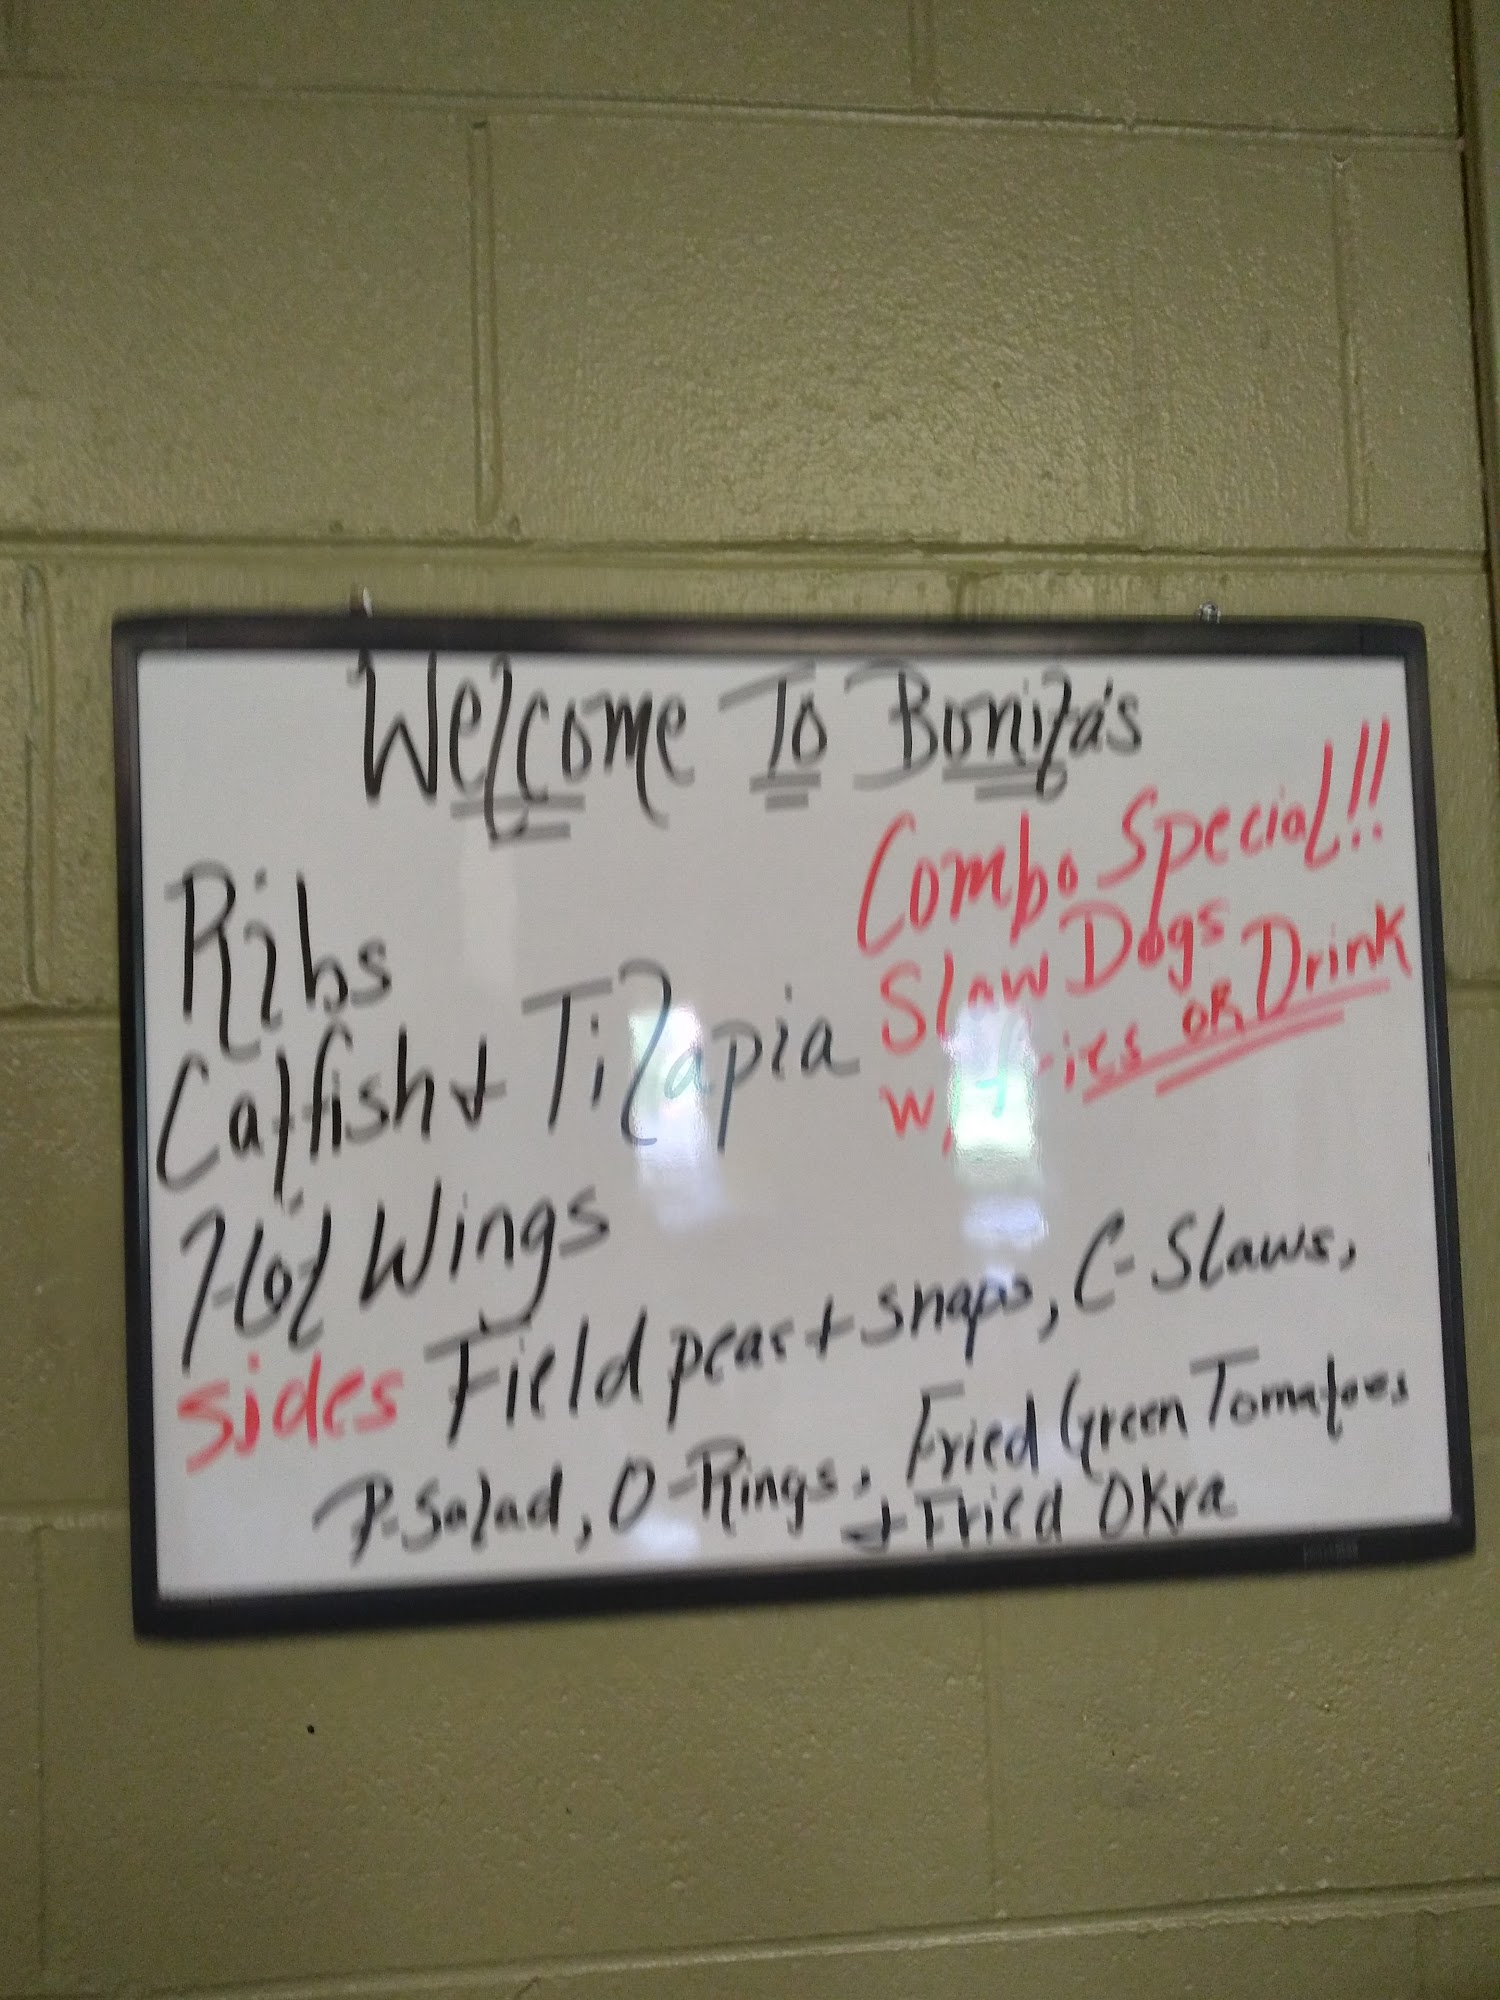 Welcome To Bonita's
Combo Special!!
Slaw Dogs
w/ Fries OR Drink
Ribs
Catfish + Tilapia
Hot Wings
sides Field peas + snaps, C-Slaws,
P-Salad, O-Rings, Fried Green Tomatoes
+ Fried Okra